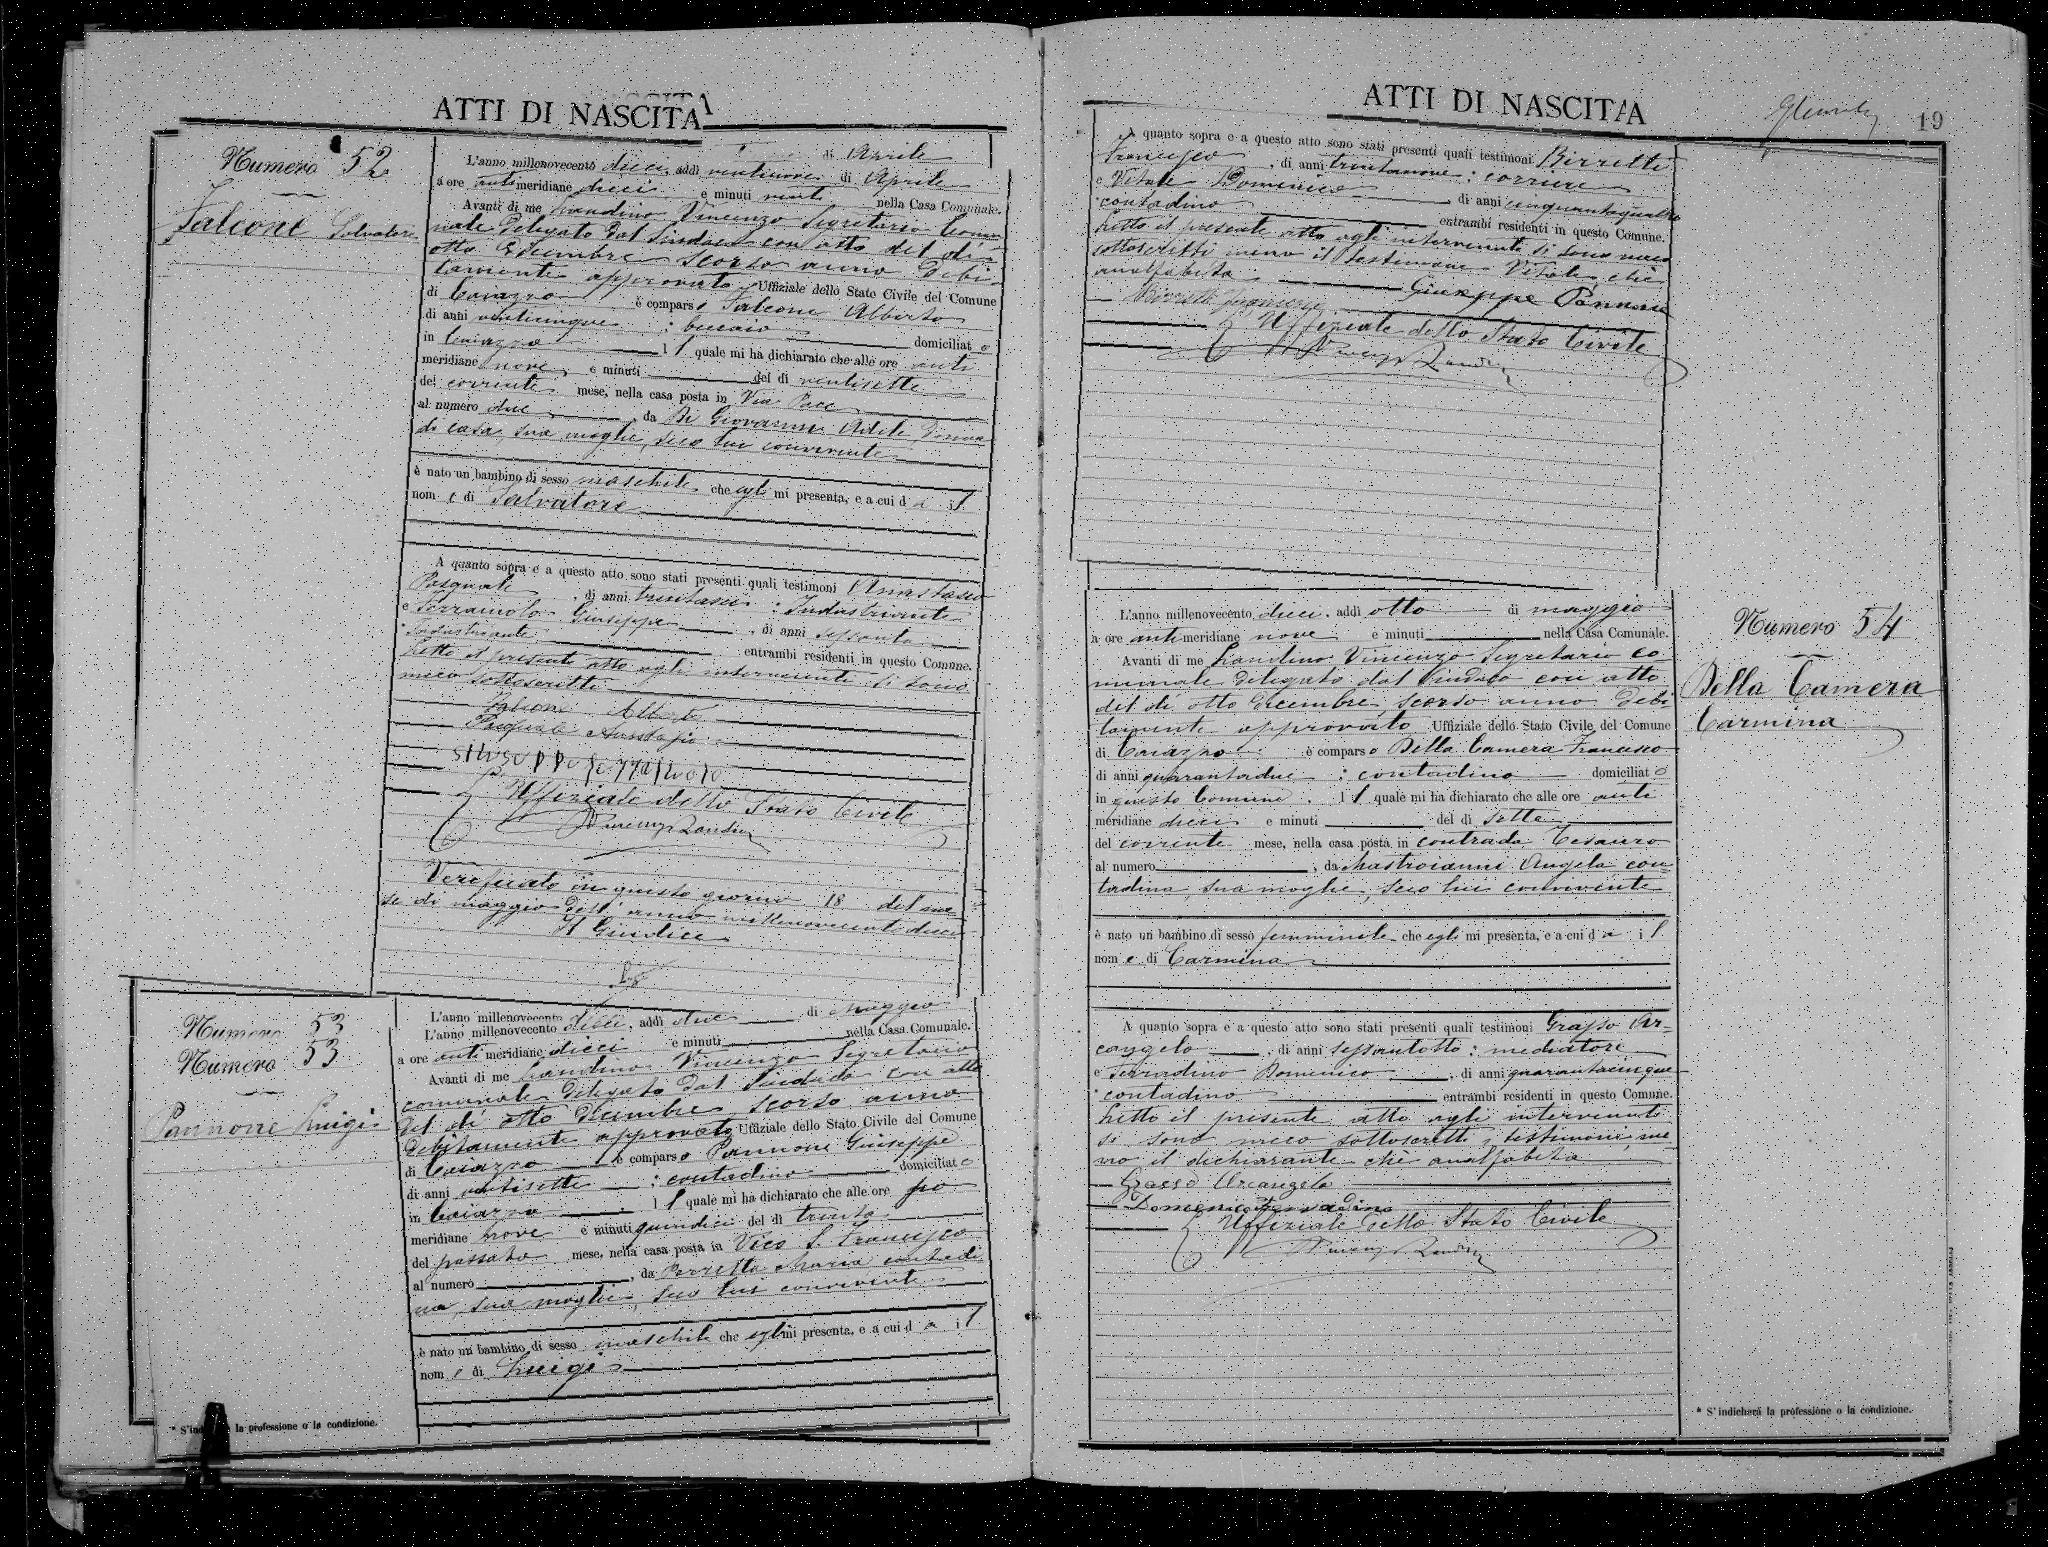 ATTI DI NASCITA
Numero 52
Falcone Salvatore
L'anno millenovecento dieci, addì ventinove di Aprile
a ore antimeridiane dieci e minuti venti nella Casa Comunale.
Avanti di me Landino Vincenzo Segretario Comu
nale Delegato dal Sindaco con atto del di
otto Dicembre scorso anno Debi
tamente approvato Uffiziale dello Stato Civile del Comune
di Caiazzo è comparso Falcone Alberto
di anni venticinque : beccaio domiciliato
in Caiazzo il quale mi ha dichiarato che alle ore anti
meridiane nove e minuti del dì ventisette
del corrente mese, nella casa posta in Via Pace
al numero due, da Di Giovanni Adele Donna
di casa, sua moglie, seco lui convivente
è nato un bambino di sesso maschile che egli mi presenta, e a cui dà il
nome di Salvatore
A quanto sopra e a questo atto sono stati presenti quali testimoni Anastasio
Pasquale, di anni trentasei : Industriante
e Ferraiuolo Giuseppe, di anni sessanta
Industriante entrambi residenti in questo Comune.
Letto il presente atto agli intervenuti si sono
meco sottoscritti
Falcone Alberto
Pasquale Anastasio
L'Uffiziale dello Stato Civile
Vincenzo Landino
Verificato in questo giorno 18 del me
se di maggio dell'anno millenovecentodieci
Il Giudice
Numero 53
Numero 53
Pannone Luigi
L'anno millenovecento
L'anno millenovecento dieci, addì due di Maggio
a ore antimeridiane dieci e minuti nella Casa Comunale.
Avanti di me Landino Vincenzo Segretario
comunale Delegato dal Sindaco con atto
del dì otto Dicembre scorso anno
Debitamente approvato Uffiziale dello Stato Civile del Comune
di Caiazzo è comparso Pannone Giuseppe
di anni ventisette : contadino domiciliato
in Caiazzo il quale mi ha dichiarato che alle ore po
meridiane nove e minuti quindici del dì trenta
del passato mese, nella casa posta in Vico S. Francesco
al numero, da Perrella Maria contadi
na, sua moglie, seco lui convivente
è nato un bambino di sesso maschile che egli mi presenta, e a cui dà il
nome di Luigi
* S'indicherà la professione o la condizione.
ATTI DI NASCITA
19
A quanto sopra e a questo atto sono stati presenti quali testimoni Birretti
Francesco, di anni trentanove : corriere
e Vitale Domenico, di anni cinquantaquattro
contadino entrambi residenti in questo Comune.
Letto il presente atto agli intervenuti si sono meco
sottoscritti meno il testimone Vitale, chè
analfabeta
Giuseppe Pannone
Birretti Francesco
L'Uffiziale dello Stato Civile
Vincenzo Landino
Numero 54
Della Camera
Carmina
L'anno millenovecento dieci, addì otto di maggio
a ore antimeridiane nove e minuti nella Casa Comunale.
Avanti di me Landino Vincenzo Segretario co
munale Delegato dal Sindaco con atto
del dì otto Dicembre scorso anno Debi
tamente approvato Uffiziale dello Stato Civile del Comune
di Caiazzo è comparso Della Camera Francesco
di anni quarantadue : contadino domiciliato
in questo Comune, il quale mi ha dichiarato che alle ore anti
meridiane dieci e minuti del dì sette
del corrente mese, nella casa posta in contrada Cesauro
al numero, da Mastroianni Angela con
tadina, sua moglie, seco lui convivente
è nato un bambino di sesso femminile che egli mi presenta, e a cui dà il
nome di Carmina
A quanto sopra e a questo atto sono stati presenti quali testimoni Grasso Ar-
cangelo, di anni sessantotto : mediatore
e Serradino Domenico, di anni quarantacinque
contadino entrambi residenti in questo Comune.
Letto il presente atto agli intervenuti
si sono meco sottoscritti i testimoni, me
no il dichiarante chè analfabeta
Grasso Arcangelo
Domenico Serradino
L'Uffiziale dello Stato Civile
Vincenzo Landino
* S'indicherà la professione o la condizione.